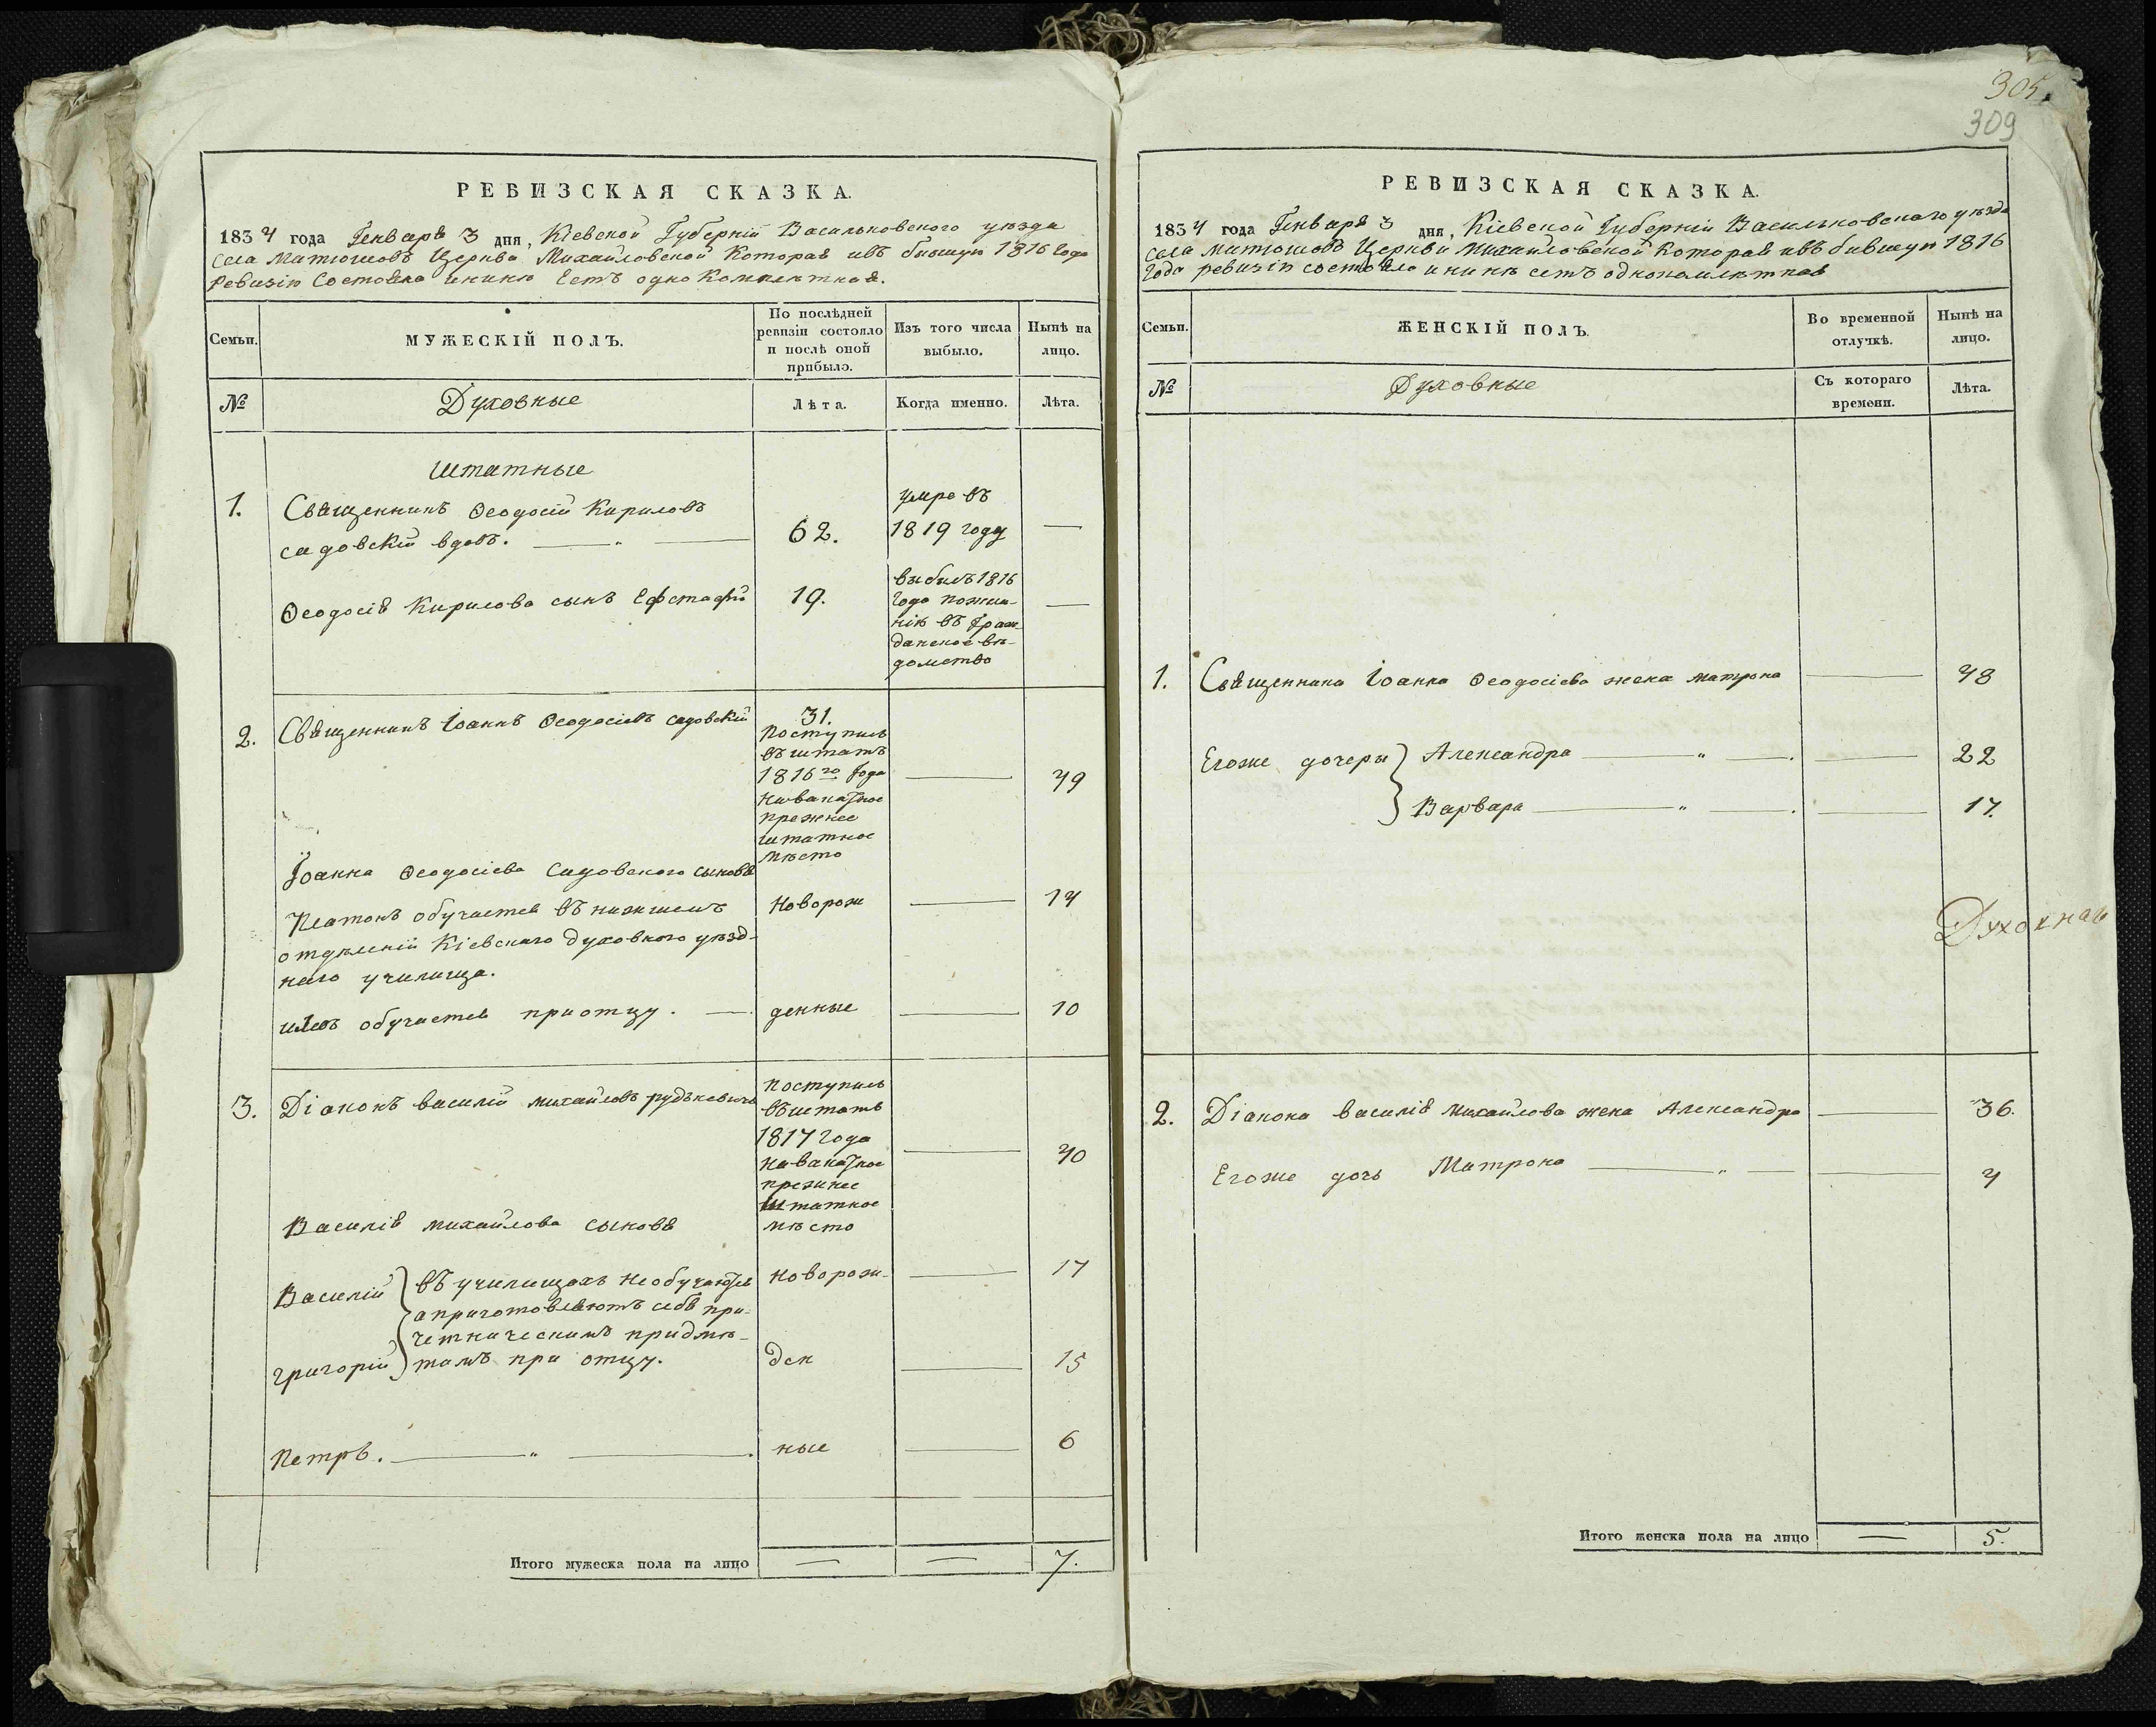 305.
309
РЕВИЗСКАЯ СКАЗКА.
1834 года Генваря 3 дня, Кіевской Губерніи Васильковского уѣзда
села Матюшовъ Церкви Михайловской Которая ивъ бившую 1816 Года
Ревизію Состояла инынѣ Естъ однокомплектная.
Семьи.
МУЖЕСКІЙ ПОЛЪ.
По послѣдней
ревизіи состояло
и послѣ оной
прибыло.
Изъ того числа
выбыло.
Нынѣ на
лицо.
№
Духовные
Лѣта.
Когда именно.
Лѣта.
Штатные
1.
Священникъ Ѳеодосій Кириловъ
садовскій вдовъ.
62.
умре въ
1819 году
Ѳеодосія Кирилова сынъ Ефстафій
19.
выбылъ 1816
Года
въ Граж-
данское вѣ-
домство
2.
Священникъ Іоаннъ Ѳеодосіевъ садовскій
31.
поступилъ
въ штатъ
1816го Года
навакатное
прежнее
штатное
мѣсто
49
Іоанна Ѳеодосіева Садовского сыновья
Платонъ обучается въ нижшемъ
отдѣленіи Кіевскаго духовного уѣзд-
наго училища.
Новорож
14
обучается приотцу.
денные
10
3.
Діаконъ василій михайловъ рудькевичъ
поступилъ
въштатъ
1817 Года
навакатное
прежнее
штатное
мѣсто
40
Василія михайлова сыновя
Василій
въ училищахъ необучаются
Новорож-
17
а приготовляютъ себя при-
четническимъ придмѣ-
Григорій
тамъ при отцу.
ден
15
Петръ.
ные
6
Итого мужеска пола на лицо
7.
РЕВИЗСКАЯ СКАЗКА.
1834 года Генваря 3 дня, Кіевской Губерніи Васильковскаго уѣзда
села матюшовъ Церкви михайловской Которая ивъ бившую 1816
Года ревизію состояла инынѣ естъ однокомплектная
Семьи.
ЖЕНСКІЙ ПОЛЪ.
Во временной
отлучкѣ.
Нынѣ на
лицо.
№
Духовные
Съ котораго
времени.
Лѣта.
1.
Священника Іоанна Ѳеодосіева жена матрона
48
Егоже дочеры
Александра
22
Варвара
17.
Духовная
2.
Діакона василія михайлова жена Александра
36.
Егоже дочь Матрона
4
Итого женска пола на лицо
5.